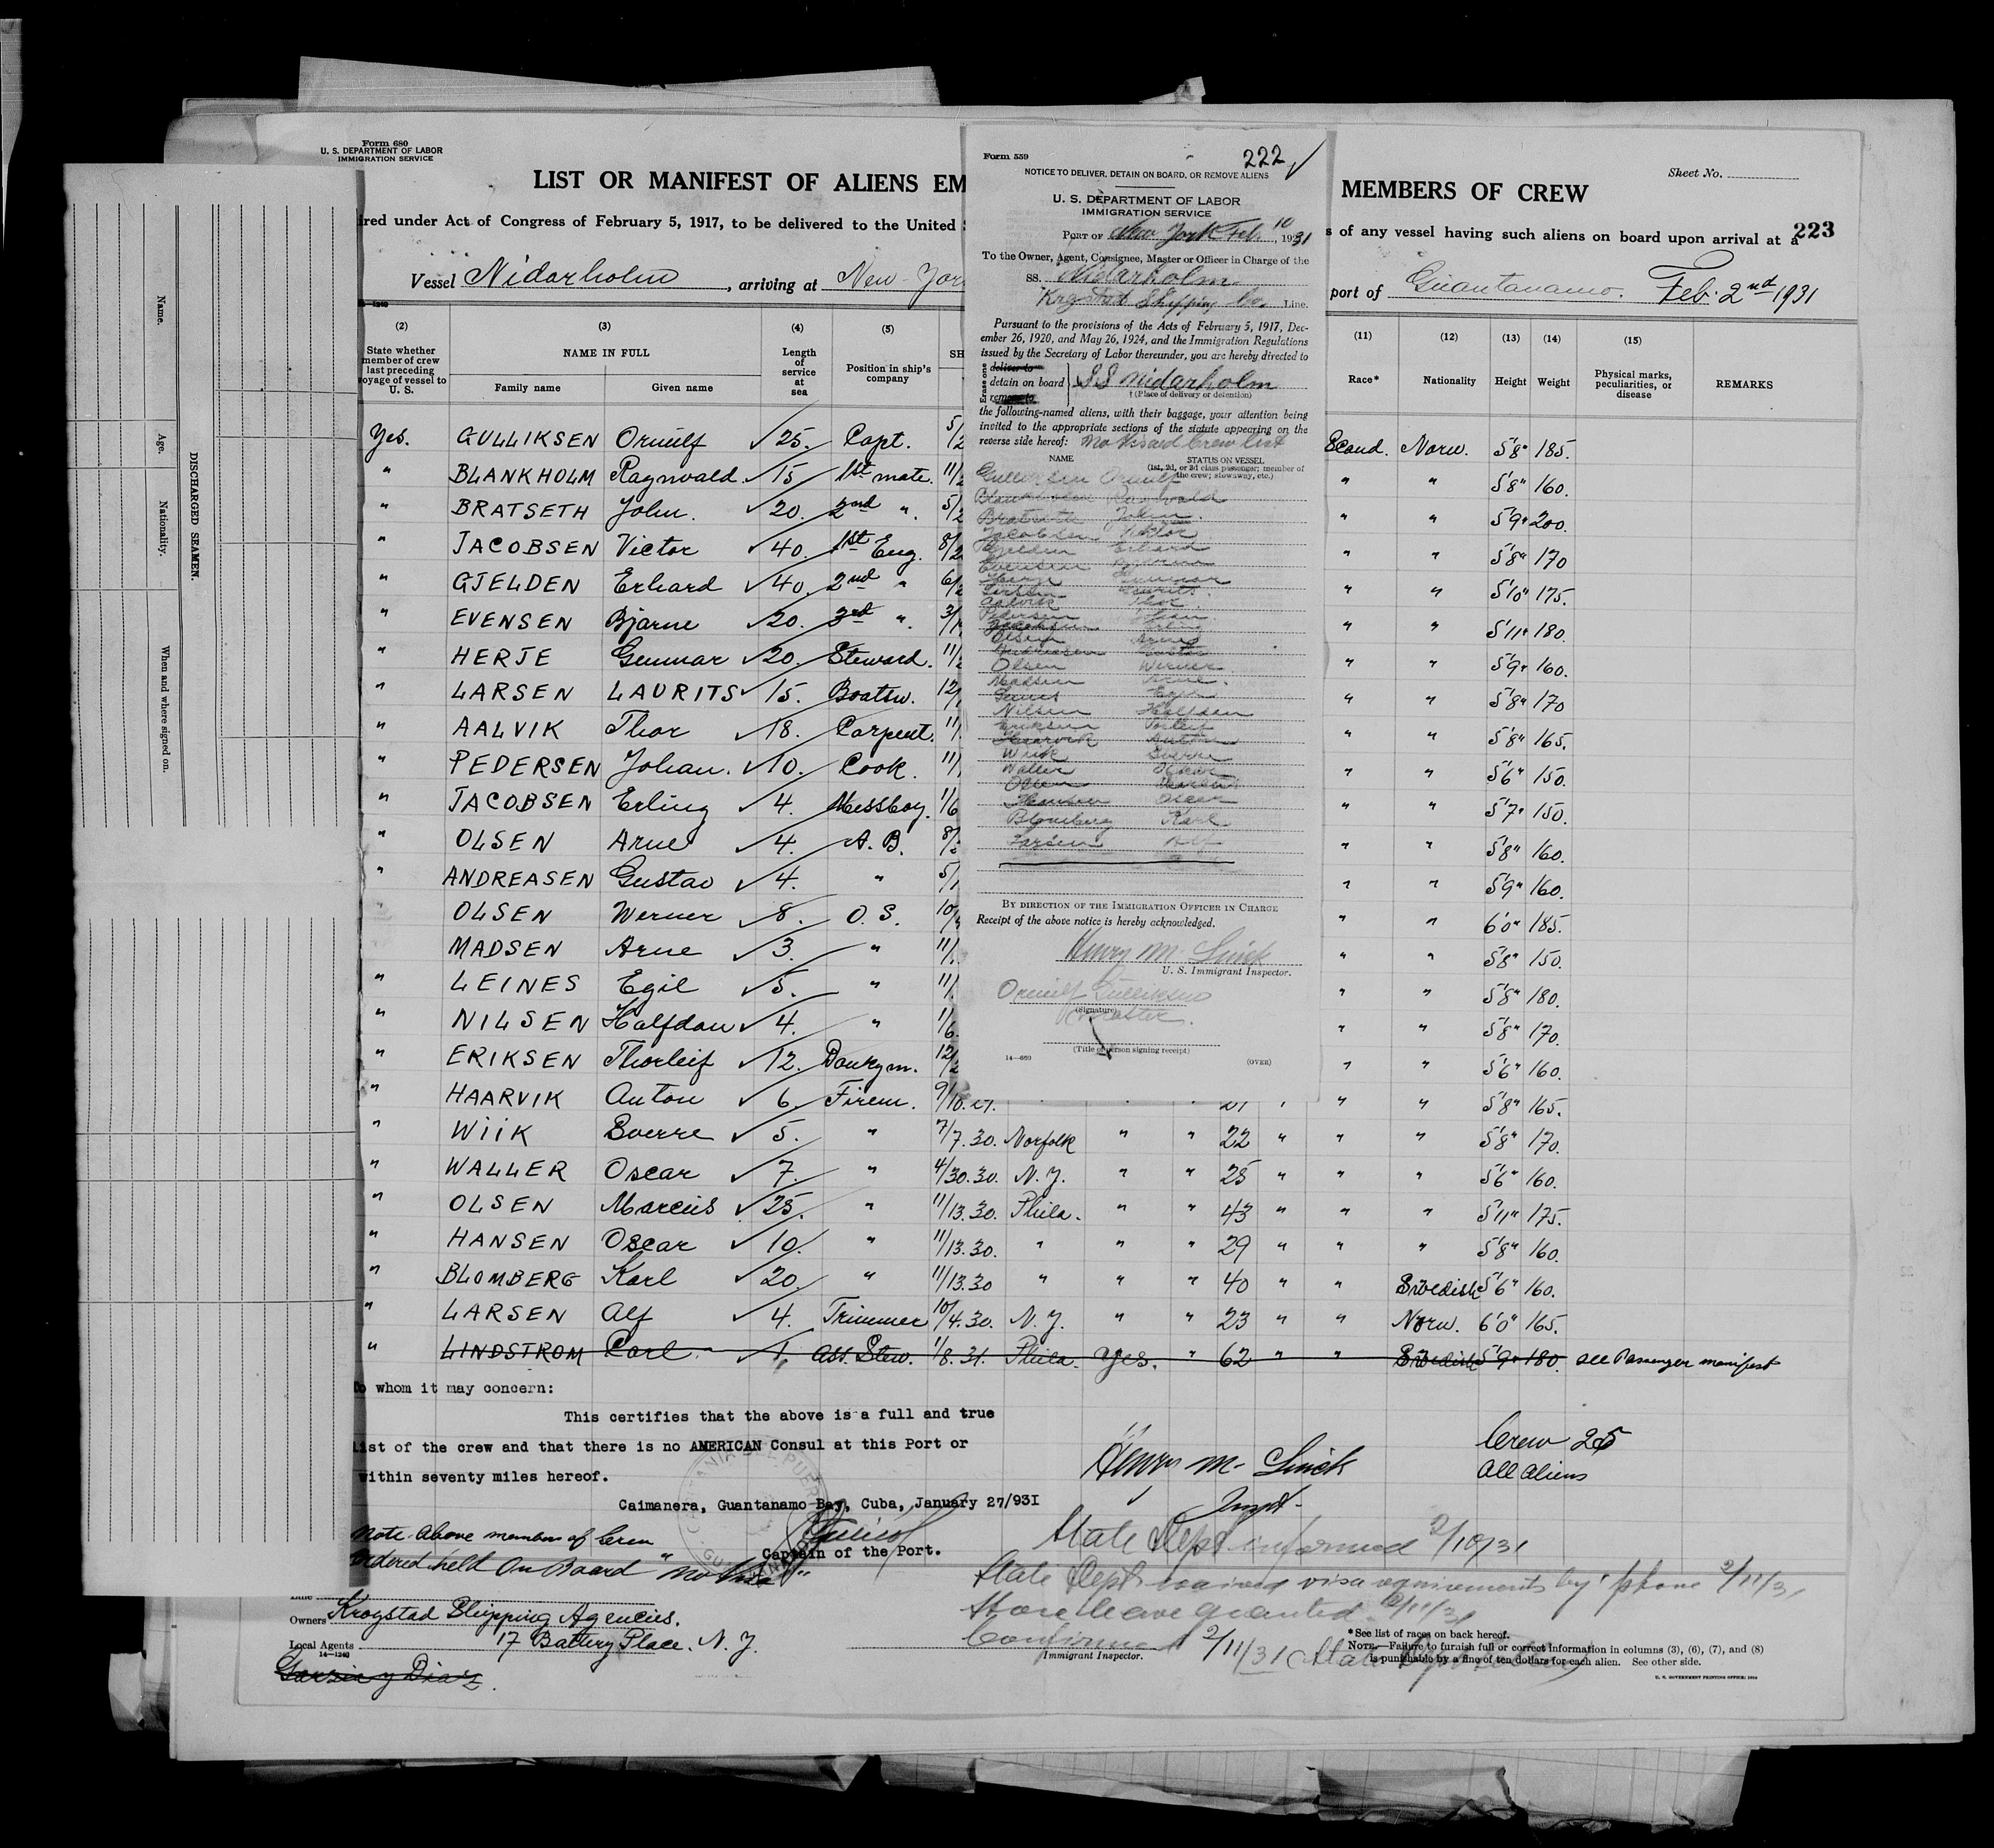 Form 680
U. S. DEPARTMENT OF LABOR
IMMIGRATION SERVICE
LIST OR MANIFEST OF ALIENS EM
MEMBERS OF CREW
Sheet No.
ired under Act of Congress of February 5, 1917, to be delivered to the United S
s of any vessel having such aliens on board upon arrival at a
223
Vessel Nidarholm, arriving at New-Yor
port of Guantanamo. Feb. 2nd 1931
(2) (3) (4) (5)
State whether member of crew last preceding voyage of vessel to U. S.
NAME IN FULL
Family name Given name
Length of service at sea
Position in ship's company
SH
(11) (12) (13) (14) (15)
Race* Nationality Height Weight Physical marks, peculiarities, or disease REMARKS
Yes. GULLIKSEN Ornulf 25. Capt. 5/2 Scand. Norw. 5'8" 185.
" BLANKHOLM Ragnvald 15 1st mate. 11/2 " " 5'8" 160.
" BRATSETH John. 20. 2nd ". 5/2 " " 5'9" 200.
" JACOBSEN Victor 40. 1st Eng. 8/2 " " 5'8" 170
" GJELDEN Erhard 40. 2nd " 6/2 " " 5'10" 175.
" EVENSEN Bjarne 20. 3rd ". 3/1 " " 5'11" 180.
" HERJE Gunnar 20. Steward. 11/2 " " 5'9" 160.
" LARSEN LAURITS 15. Boatsw. 12/ " " 5'8" 170
" AALVIK Thor 18. Carpent. 11/ " " 5'8" 165.
" PEDERSEN Johan. 10. Cook. 11/ " " 5'6" 150.
" JACOBSEN Erling 4. Messboy. 1/6 " " 5'7" 150.
" OLSEN Arne 4. A. B. 8/2 " " 5'8" 160.
" ANDREASEN Gustav 4. " 5/1 " " 5'9" 160.
" OLSEN Werner 8. O. S. 10/ " " 6'0" 185.
MADSEN Arne 3. " 11/ " " 5'8" 150.
" LEINES Egil 5. " 11/ " " 5'8" 180.
" NILSEN Halfdan 4. " 1/6. " " 5'8" 170.
" ERIKSEN Thorleif 12. Donkym. 12/2 " " 5'6" 160.
" HAARVIK Anton 6. Firem. 9/10. 27. " " 5'8" 165.
" WIIK Sverre 5. " 7/7. 30. Norfolk " " 22 " " " 5'8" 170.
" WALLER Oscar 7. " 4/30. 30. N. Y. " " 25 " " " 5'6" 160.
" OLSEN Marcus 25. " 11/13. 30. Phila. " " 43 " " " 5'11" 175.
" HANSEN Oscar 10. " 11/13. 30. " " " 29 " " " 5'8" 160.
" BLOMBERG Karl 20. " 11/13. 30 " " " 40 " " Swedish 5'6" 160.
" LARSEN Alf 4. Trimmer 10/4. 30. N. Y. " " 23 " " Norw. 6'0" 165.
" LINDSTROM Carl. 1. Ass. Stew. 1/8. 31. Phila. Yes. " 62 " " Swedish 5'9" 180. see Passenger manifest
To whom it may concern:
This certifies that the above is a full and true
list of the crew and that there is no AMERICAN Consul at this Port or
within seventy miles hereof.
Caimanera, Guantanamo Bay, Cuba, January 27/931
Captain of the Port.
Note. Above members of Crew
ordered held On Board "No Visa"
Henry M. Linick
Inspt.
Crew 25
All aliens
State Dept informed 2/10/31
State Dept. waived visa requirements by phone 2/11/31
Shore leave granted 2/11/31
2/11/31
Owners Krogstad Shipping Agencies.
Local Agents 17 Battery Place. N. Y.
14—1240
Garzia y Diaz.
Immigrant Inspector.
*See list of races on back hereof.
NOTE.—Failure to furnish full or correct information in columns (3), (6), (7), and (8)
is punishable by a fine of ten dollars for each alien. See other side.
U. S. GOVERNMENT PRINTING OFFICE
DISCHARGED SEAMEN.
Name.
Age.
Nationality.
When and where signed on.
Form 559
222
NOTICE TO DELIVER, DETAIN ON BOARD, OR REMOVE ALIENS
U. S. DEPARTMENT OF LABOR
IMMIGRATION SERVICE
PORT OF New York Feb. 10, 1931
To the Owner, Agent, Consignee, Master or Officer in Charge of the
SS. Nidarholm.
Krogstad Shipping Co. Line.
Pursuant to the provisions of the Acts of February 5, 1917, Dec-
ember 26, 1920, and May 26, 1924, and the Immigration Regulations
issued by the Secretary of Labor thereunder, you are hereby directed to
Erase one
deliver to
detain on board
remove to
SS Nidarholm
† (Place of delivery or detention)
the following-named aliens, with their baggage, your attention being
invited to the appropriate sections of the statute appearing on the
reverse side hereof: No Visaed Crew list
NAME STATUS ON VESSEL
(1st, 2d, or 3d class passenger; member of the crew; stowaway, etc.)
Gulliksen Ornulf
Blankholm Ragnvald
Bratseth John.
Jacobsen Victor
Gjelden Erhard
Evensen Bjarne
Herje Gunnar
Larsen Laurits.
Aalvik Thor.
Pedersen Johan
Jacobsen Erling
Olsen Arne
Andreasen Gustav
Olsen Werner
Madsen Arne.
Leines Egil
Nilsen Halfdan
Eriksen Thorleif
Haarvik Anton
Wiik Sverre
Waller Oscar
Olsen Marcus
Hansen Oscar
Blomberg Karl
Larsen Alf
BY DIRECTION OF THE IMMIGRATION OFFICER IN CHARGE
Receipt of the above notice is hereby acknowledged.
Henry M. Linick
U. S. Immigrant Inspector.
Ornulf Gulliksen
(Signature)
Master.
(Title of person signing receipt)
14—660
(OVER)